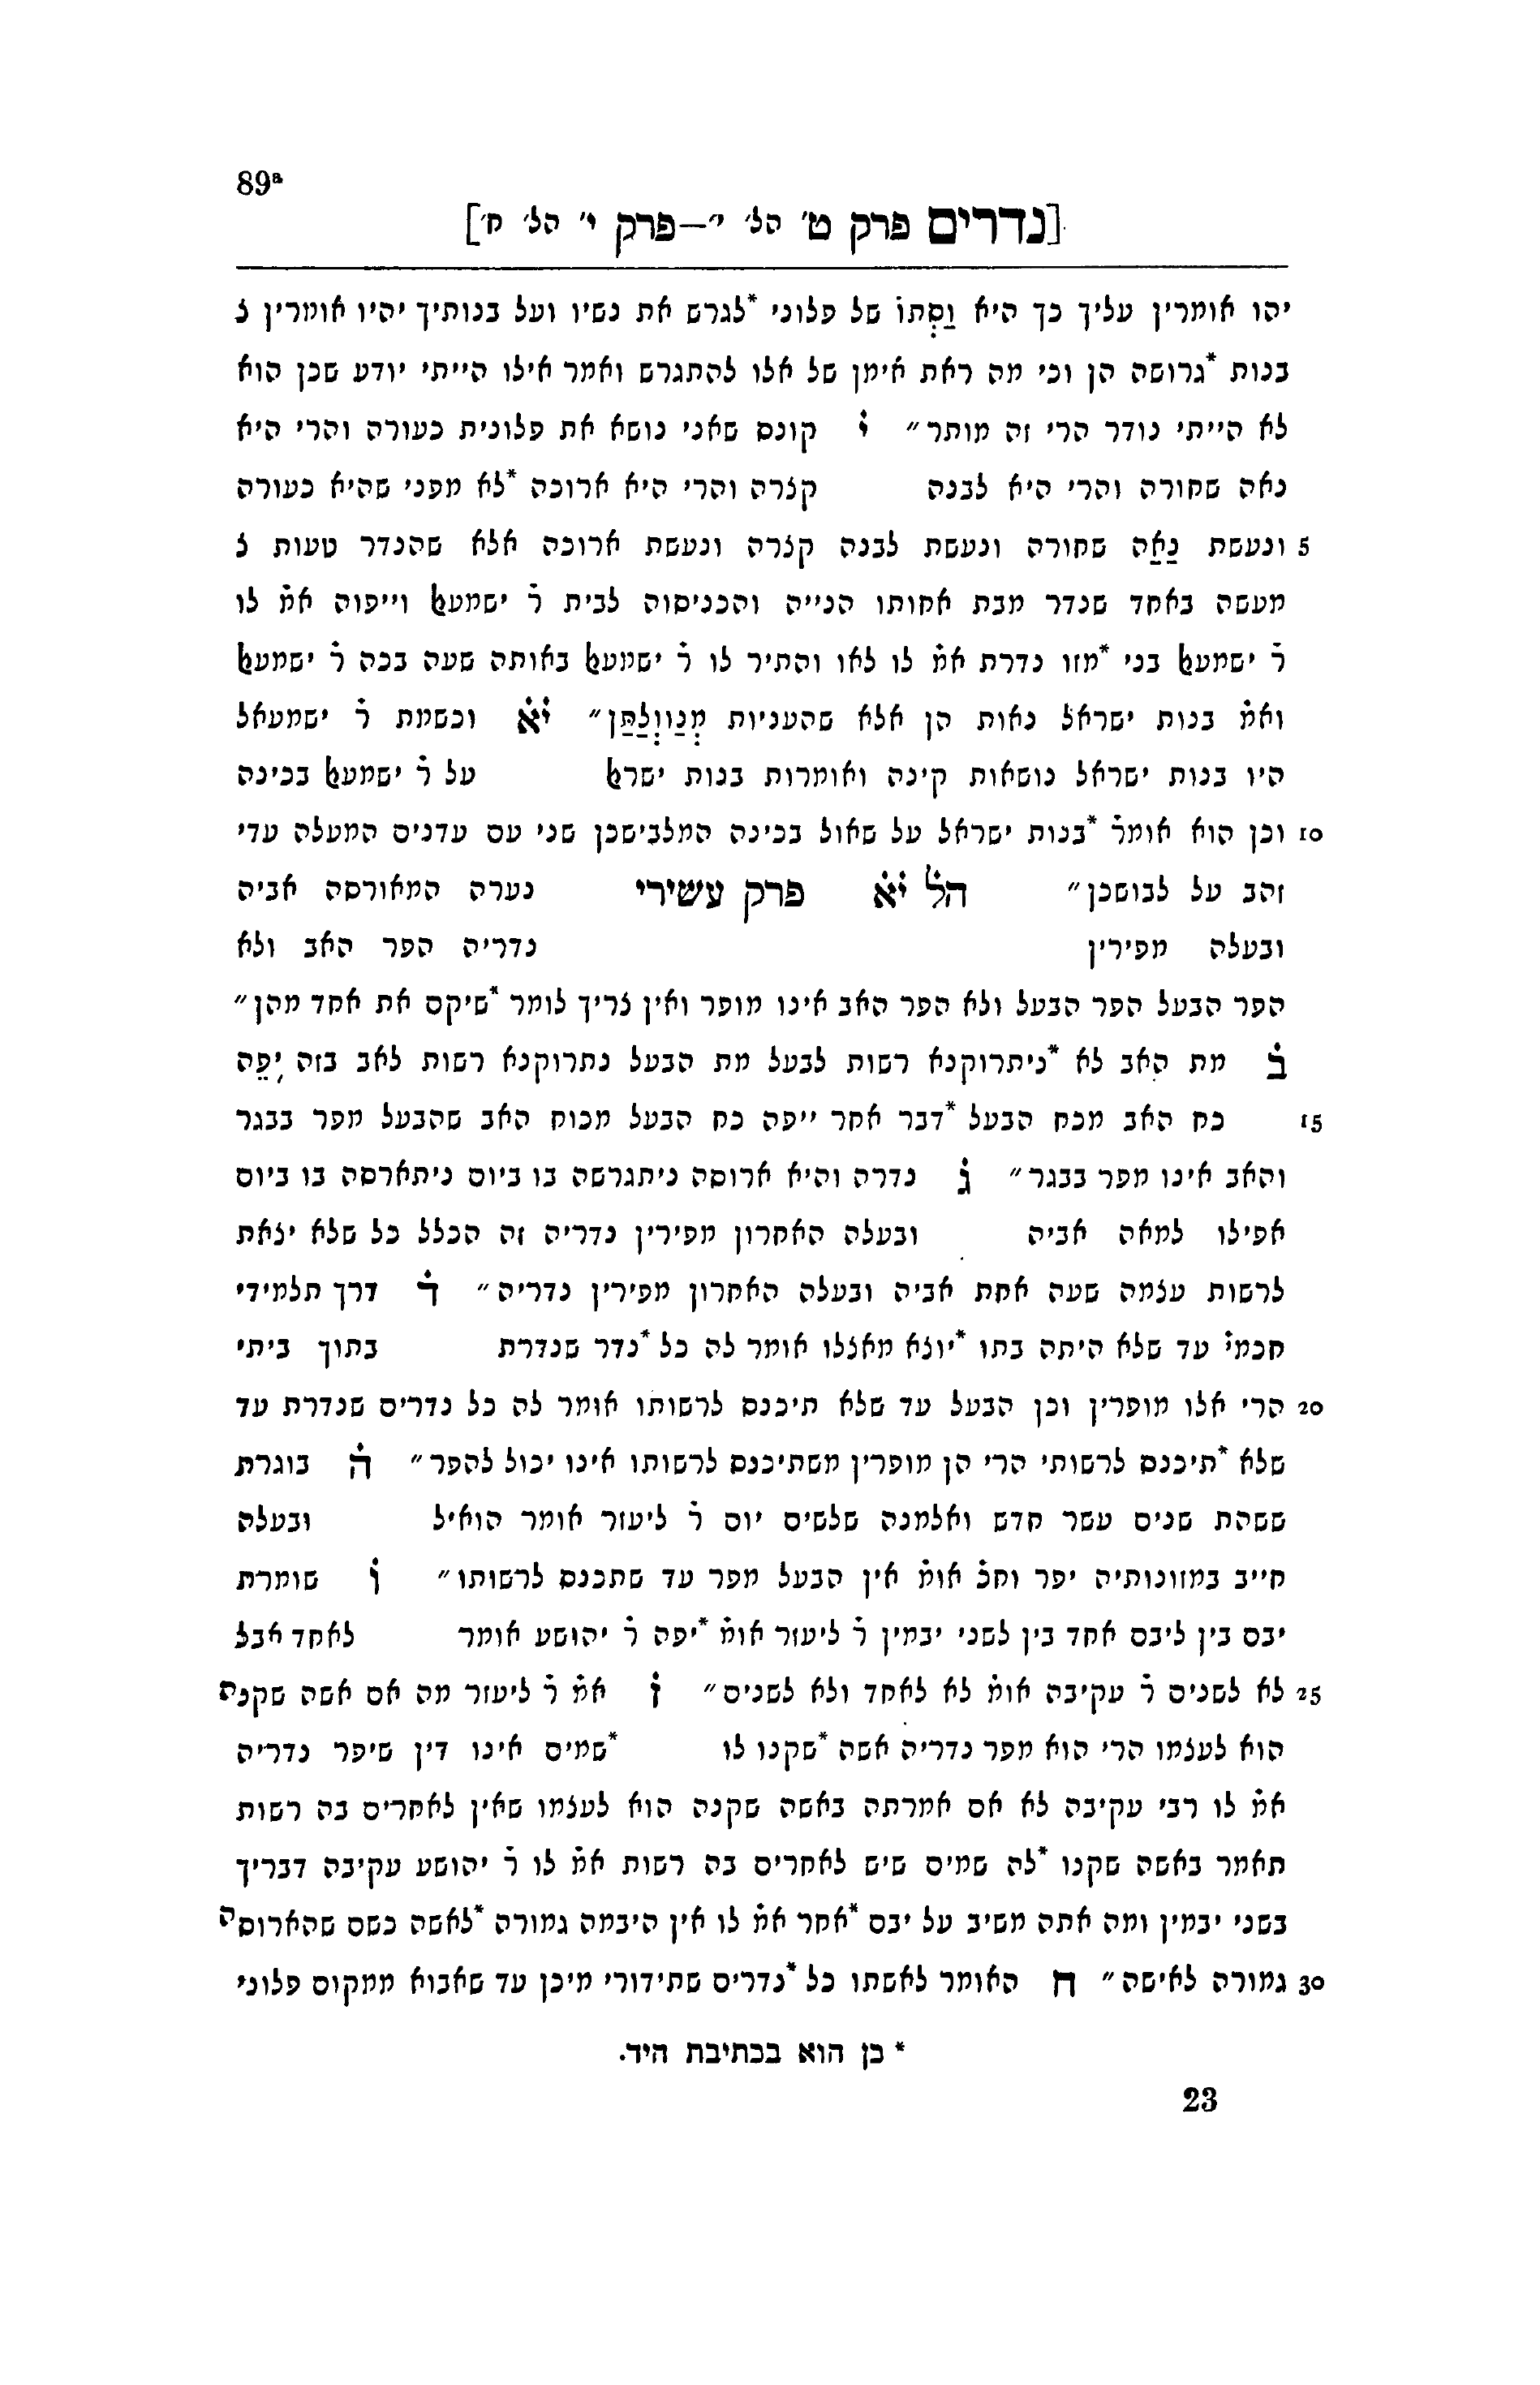 89a
[נדרים פרק ט' הל' י"—פרק י' הל' ח']
יהו אומרין עליך כך היא וִסְתּוֹ של פלוני *לגרש את נשיו ועל בנותיך יהיו אומרין צ
בנות *גרושה הן וכי מה ראת אימן של אלו להתגרש ואמר אילו הייתי יודע שכן הוא
לא הייתי נודר הרי זה מותר״ י קונס שאני נושא את פלונית כעורה והרי היא
נאה שחורה והרי היא לבנה קצרה והרי היא ארוכה *לא מפני שהיא כעורה
5 ונעשת נַאַה שחורה ונעשת לבנה קצרה ונעשת ארוכה אלא שהנדר טעות צ
מעשה באחד שנדר מבת אחותו הנייה והכניסוה לבית ר̇ ישמעﭏ וייפוה אמ̇ לו
ר̇ ישמעﭏ בני *מזו נדרת אמ̇ לו לאו והתיר לו ר̇ ישמעﭏ באותה שעה בכה ר̇ ישמעﭏ
ואמ̇ בנות ישראל נאות הן אלא שהעניות מְנַוְולַתַּן״ יא וכשמת ר̇ ישמעאל
היו בנות ישראל נושאות קינה ואומרות בנות ישרﭏ על ר̇ ישמעﭏ בכינה
10 וכן הוא אומר̇ *בנות ישראל על שאול בכינה המלבישכן שני עם עדנים המעלה עדי
זהב על לבושכן״ הל̇ יא פרק עשירי נערה המאורסה אביה
ובעלה מפירין נדריה הפר האב ולא
הפר הבעל הפר הבעל ולא הפר האב אינו מופר ואין צריך לומר *שיקם את אחד מהן״
ב מת האב לא *ניתרוקנא רשות לבעל מת הבעל נתרוקנא רשות לאב בזה יִפֵה
15 כח האב מכח הבעל *דבר אחר ייפה כח הבעל מכוח האב שהבעל מפר בבגר
והאב אינו מפר בבגר״ ג נדרה והיא ארוסה ניתגרשה בו ביום ניתארסה בו ביום
אפילו למאה אביה ובעלה האחרון מפירין נדריה זה הכלל כל שלא יצאת
לרשות עצמה שעה אחת אביה ובעלה האחרון מפירין נדריה״ ד דרך תלמידי
חכמי̇ עד שלא היתה בתו *יוצא מאצלו אומר לה כל *נדר שנדרת בתוך ביתי
20 הרי אלו מופרין וכן הבעל עד שלא תיכנס לרשותו אומר לה כל נדרים שנדרת עד
שלא *תיכנס לרשותי הרי הן מופרין משתיכנס לרשותו אינו יכול להפר״ ה בוגרת
ששהת שנים עשר חדש ואלמנה שלשים יום ר̇ ליעזר אומר הואיל ובעלה
חייב במזונותיה יפר וחכ̇ אומ̇ אין הבעל מפר עד שתכנס לרשותו״ ו שומרת
יבם בין ליבם אחד בין לשני יבמין ר̇ ליעזר אומ̇ *יפה ר̇ יהושע אומר לאחד אבל
25 לא לשנים ר̇ עקיבה אומ̇ לא לאחד ולא לשנים״ ז אמ̇ ר̇ ליעזר מה אם אשה שקנה
הוא לעצמו הרי הוא מפר נדריה אשה *שקנו לו *שמים אינו דין שיפר נדריה
אמ̇ לו רבי עקיבה לא אם אמרתה באשה שקנה הוא לעצמו שאין לאחרים בה רשות
תאמר באשה שקנו *לה שמים שיש לאחרים בה רשות אמ̇ לו ר̇ יהושע עקיבה דבריך
בשני יבמין ומה אתה משיב על יבם *אחר אמ̇ לו אין היבמה גמורה *לאשה כשם שהארוסה
30 גמורה לאישה״ ח האומר לאשתו כל *נדרים שתידורי מיכן עד שאבוא ממקום פלוני
* כן הוא בכתיבת היד.
23